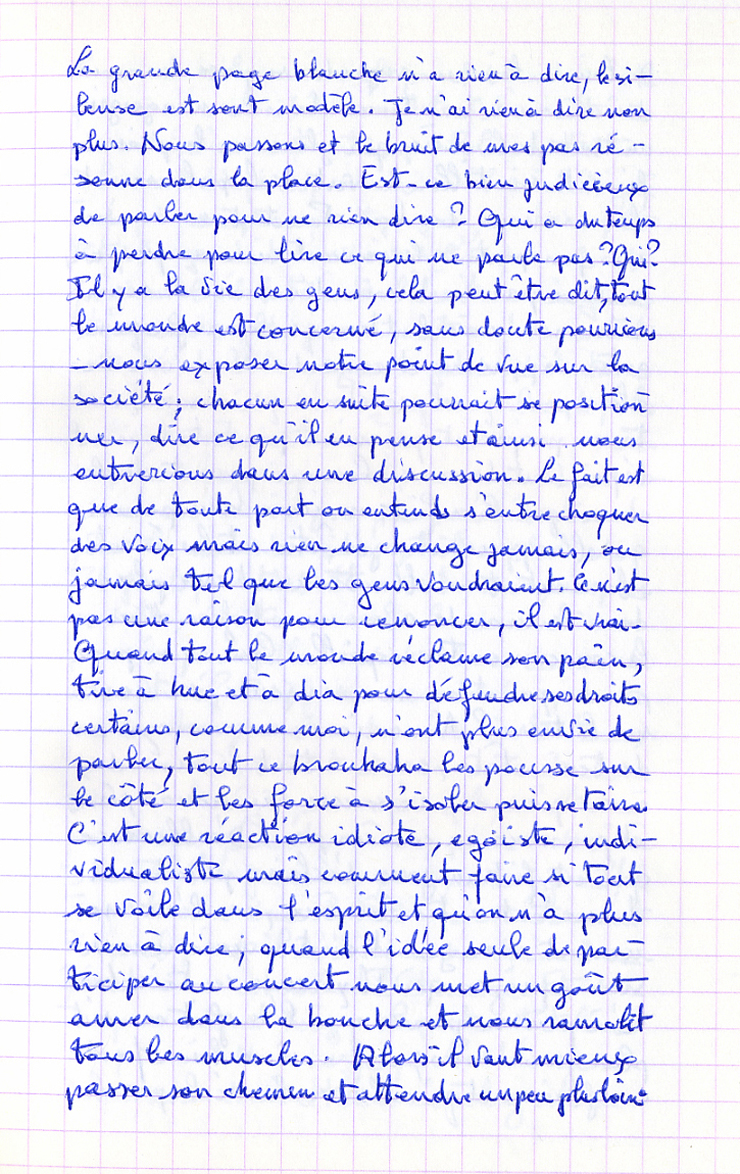 La grande page blanche n'a rien à dire, le si-
lense est sont modèle. Je n'ai rien à dire non
plus. Nous passons et le bruit de mes pas ré-
sonne dans la place. Est-ce bien judicieux
de parler pour ne rien dire ? Qui a du temps
à perdre pour lire ce qui ne parle pas ? Qui ?
Il y a la vie des gens, cela peut être dit, tout
le monde est concerné, sans doute pourrions
-nous exposer notre point de vue sur la
société ; chacun en suite pourrait se position
ner, dire ce qu'il en pense et ainsi nous
entrerions dans une discussion. Le fait est
que de toute part on entends s'entrechoquer
des voix mais rien ne change jamais, ou
jamais tel que les gens voudraient. Ce n'est
pas une raison pour renoncer, il est vrai.
Quand tout le monde réclame son pain,
tire à hue et à dia pour défendre ses droits
certains, comme moi, n'ont plus envie de
parler, tout ce brouhaha les pousse sur
le côté et les force à s'isoler puis se taire.
C'est une réaction idiote, egoïste, indi-
vidualiste mais comment faire si tout
se voile dans l'esprit et qu'on n'a plus
rien à dire ; quand l'idée seule de par-
ticiper au concert nous met un goût
amer dans la bouche et nous ramolit
tous les muscles. Alors il vaut mieux
passer son chemin et attendre un peu plus loin.